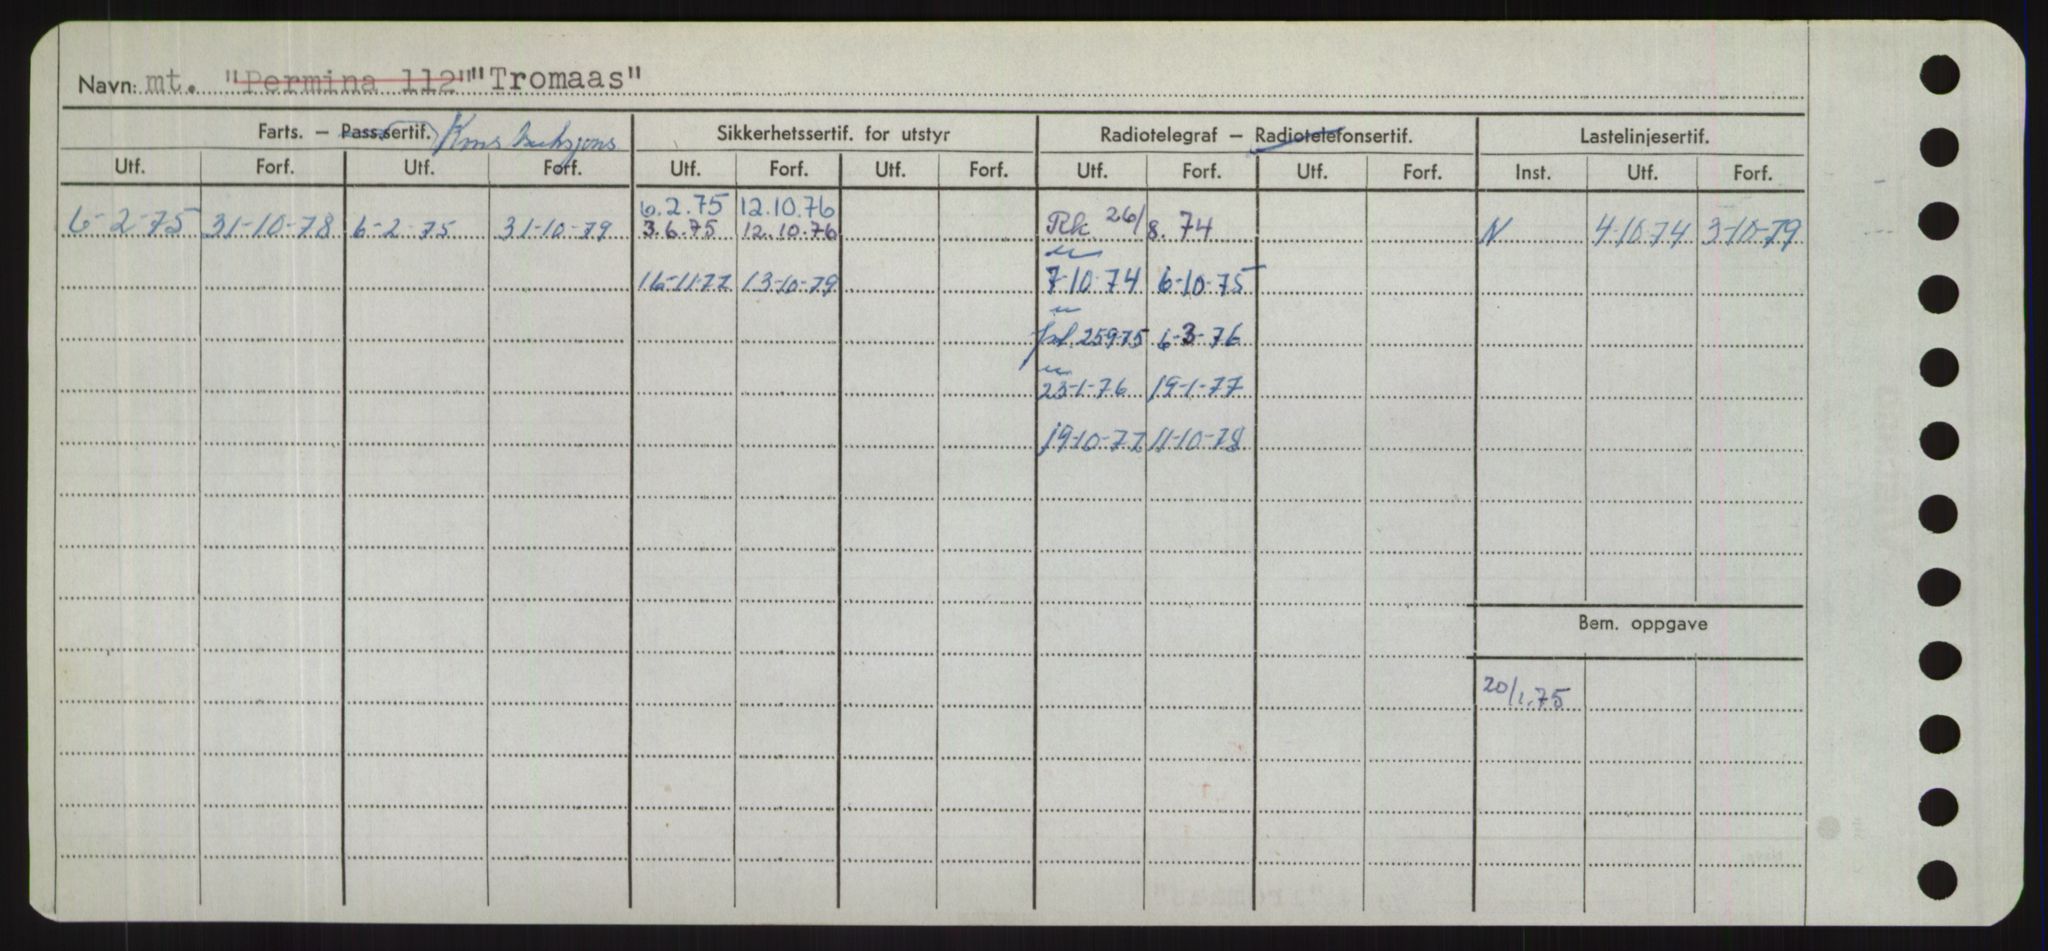 Navn: mt. "Permina 112" "Tromaas"
Farts. – Pass.sertif. Konstruksjons Sikkerhetssertif. for utstyr Radiotelegraf – Radiotelefonsertif. Lastelinjesertif.
Utf. Forf. Utf. Forf. Utf. Forf. Utf. Forf. Utf. Forf. Utf. Forf. Inst. Utf. Forf.
6.2.75 12.10.76
6-2-75 31-10-78 6-2-75 31-10-79 3.6.75 12.10.76 Rk 26/8.74 N 4-10-74 3-10-79
16-11-77 13-10-79 7-10-74 6-10-75
25975 6-3-76
23-1-76 19-1-77
19-10-77 11-10-78
Bem. oppgave
20/1.75